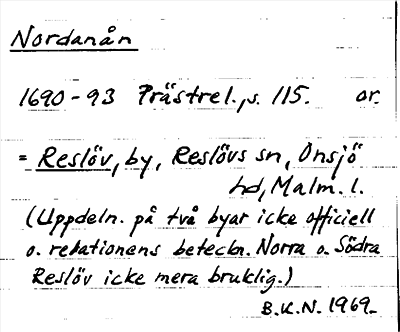 Nordanån
1690-93 Prästrel., s. 115. or.
= Reslöv, by, Reslövs sn, Onsjö
hd, Malm. l.
(Uppdeln. på två byar icke officiell
o. relationens beteckn. Norra o. Södra
Reslöv icke mera bruklig.)
B.K.N. 1969.